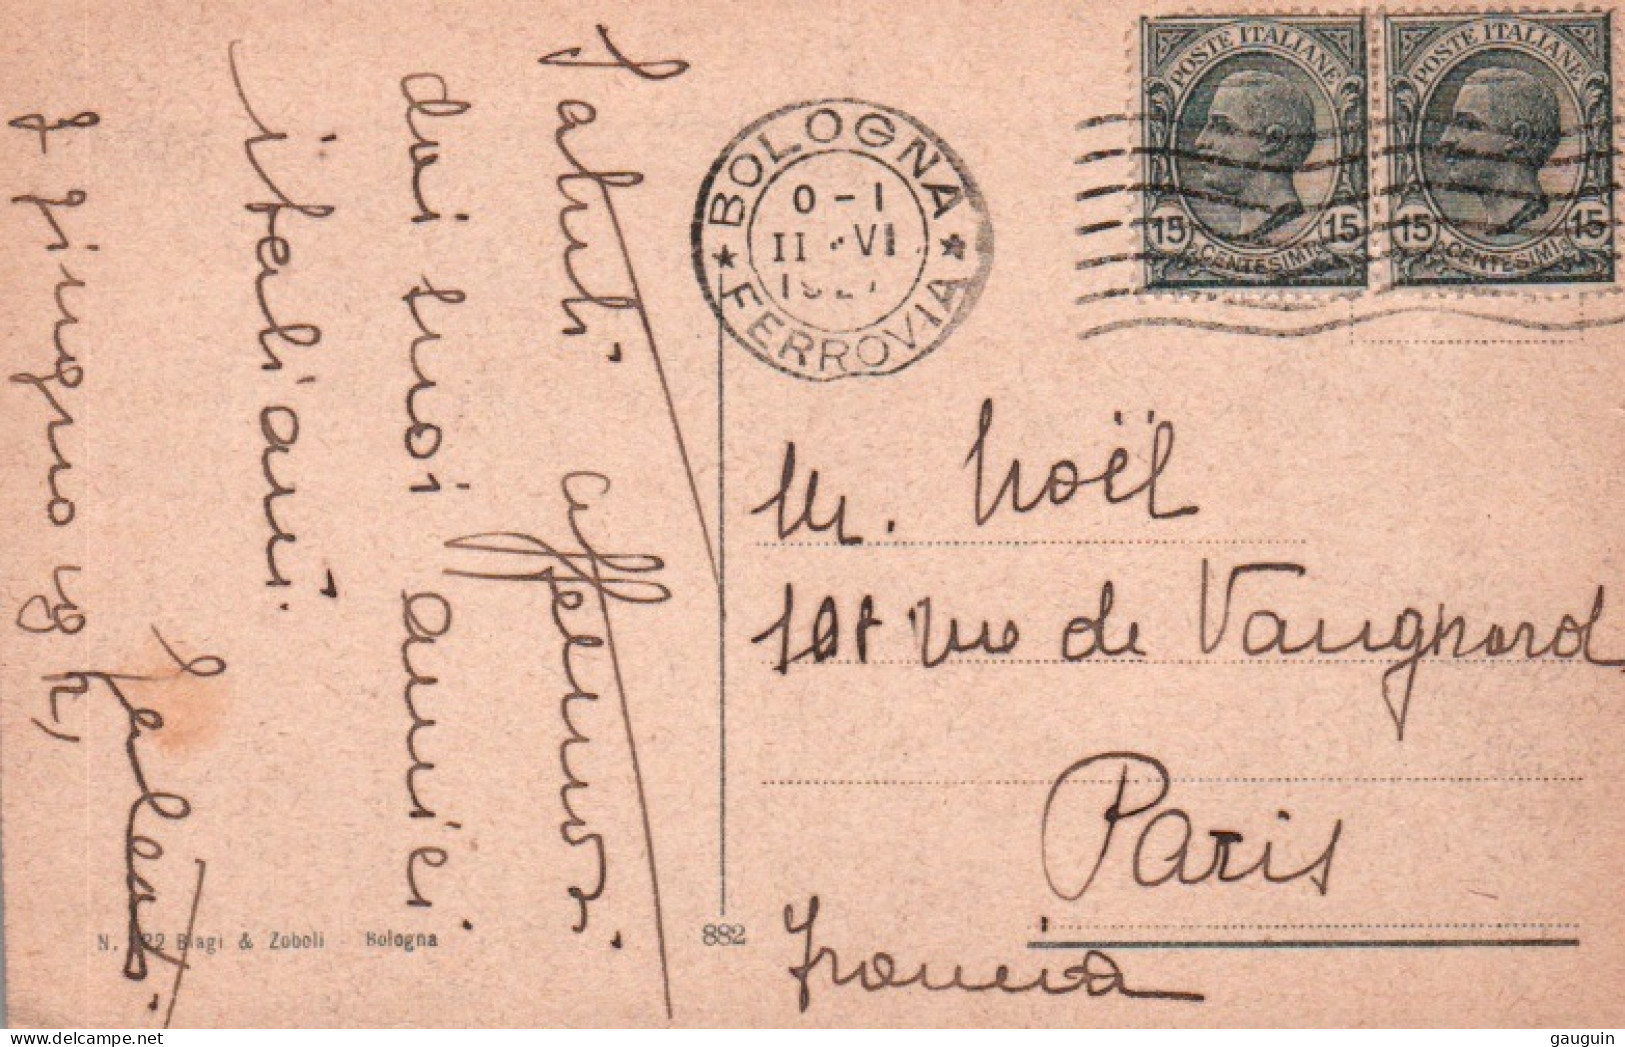 Saluti affettuosi
dai tuoi amici
italiani.
8 giugno 1927
BOLOGNA
FERROVIA
0 - 1
11 · VI
1927
POSTE ITALIANE
15 15
CENTESIMI
POSTE ITALIANE
15 15
CENTESIMI
M. Noël
rue de Vaugirard
Paris
Francia
Biagi & Zoboli - Bologna
882
gauguin